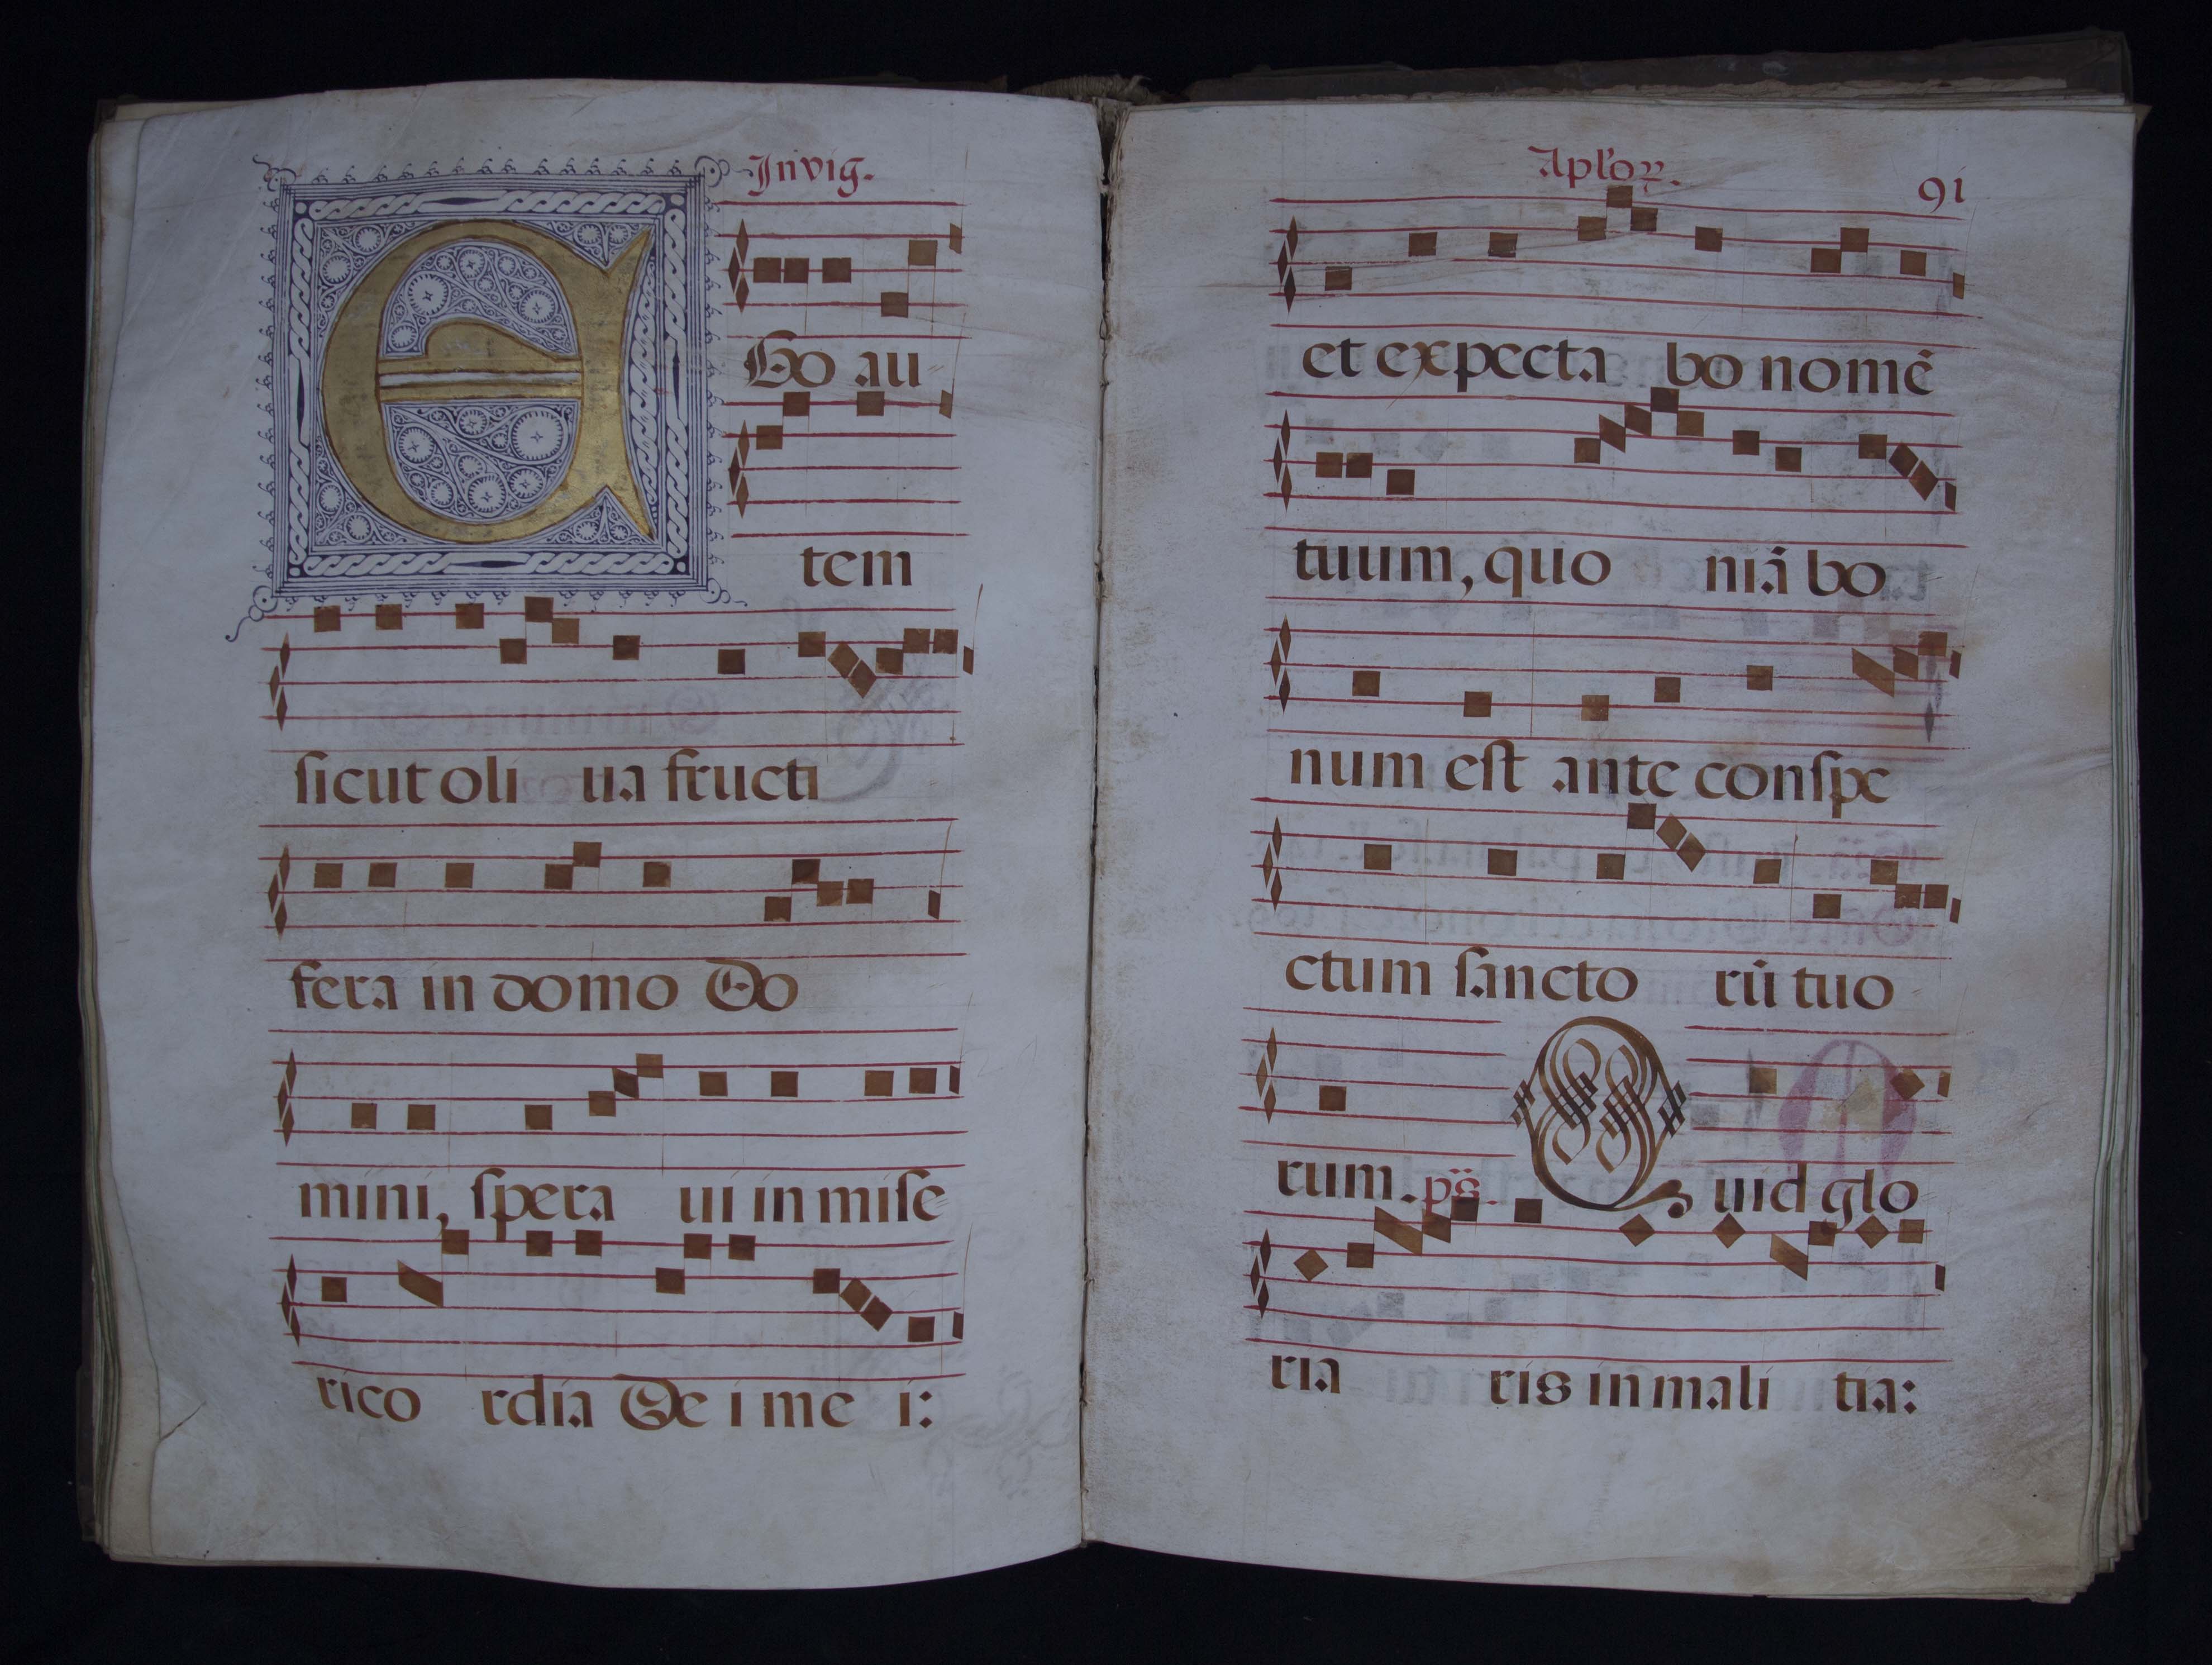 Invig.
EGo au=
tem
sicut oli ua fructi
fera in domo Do
mini, spera ui in mise=
rico rdia De i me i:
Aploꝝ.
91
et expecta bo nomē
tuum, quo niā bo
num est ante conspe
ctum sancto rū tuo
rum. ps. Quid glo
ria ris in mali tia: